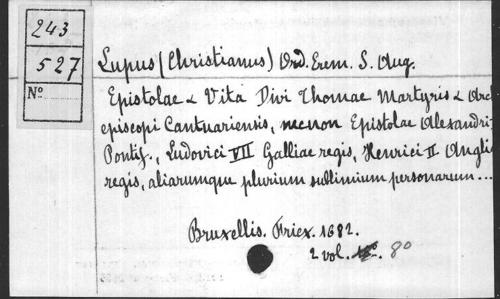 243
527
N°
Lupus (Christianus) Ord. Erem. S. Aug.
Epistolae & Vita Divi Thomae Martyris & Arch
episcopi Cantuariensis, necnon Epistolae Alexandri
Pontif., Ludovici VII Galliae regis, Henrici II Angli
regis, aliarumque plurium sublimium personarum ...
Bruxellis. Fricx. 1682.
2 vol. 8o